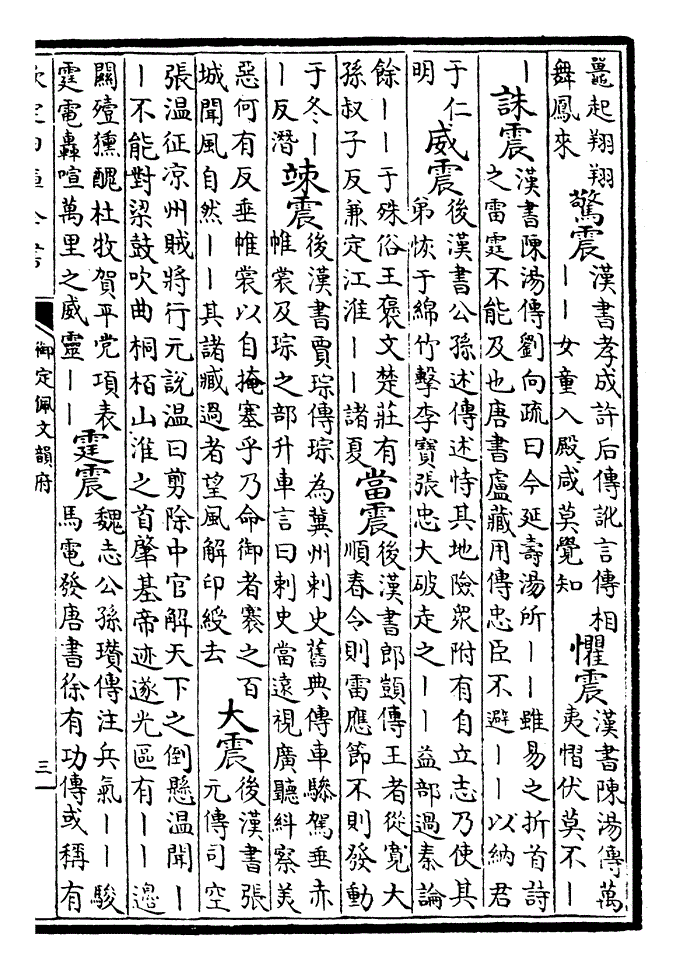 鼉起翔翔
舞鳳來
驚震
漢書孝成許后傳訛言傳相
——女童入殿咸莫覺知
懼震
漢書陳湯傳萬
夷慴伏莫不—
—
誅震
漢書陳湯傳劉向疏曰今延壽湯所——雖易之折首詩
之雷霆不能及也唐書盧藏用傳忠臣不避——以納君
于仁
明
威震
後漢書公孫述傳述恃其地險衆附有自立志乃使其
弟恢于綿竹擊李寶張忠大破走之——益部過秦論
餘——于殊俗王褒文楚莊有
孫叔子反兼定江淮——諸夏
當震
後漢書郎顗傳王者從寬大
順春令則雷應節不則發動
于冬—
—反潛
竦震
後漢書賈琮傳琮為冀州刺史舊典傳車驂駕垂赤
帷裳及琮之部升車言曰刺史當遠視廣聽糾察美
惡何有反垂帷裳以自掩塞乎乃命御者褰之百
城聞風自然——其諸臧過者望風解印綬去
大震
後漢書張
元傳司空
張温征凉州賊將行元說温曰剪除中官解天下之倒懸温聞—
—不能對梁鼓吹曲桐栢山淮之首肇基帝迹遂光區有——邉
關殪獯醜杜牧賀平党項表
霆電轟喧萬里之威靈——
霆震
魏志公孫瓚傳注兵氣——駿
馬電發唐書徐有功傳或稱有
欽定四庫全書
御定佩文韻府
三